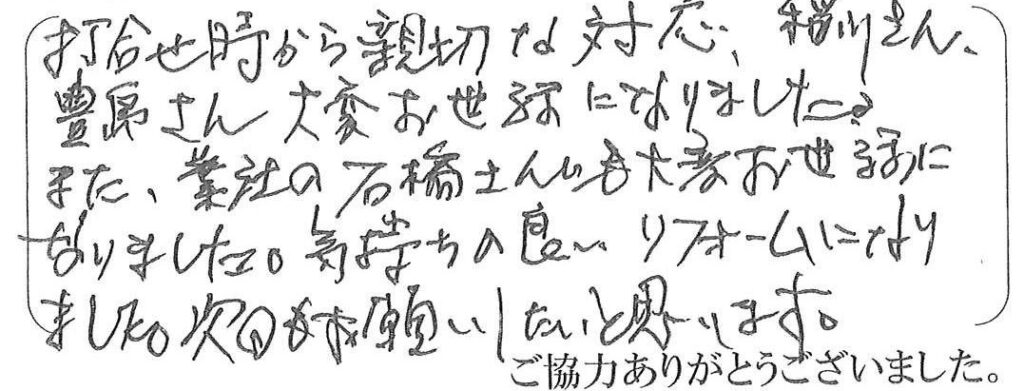 打合せ時から親切な対応、相川さん、
豊島さん大変お世話になりました。
また、業社の石橋さんにも大変お世話に
なりました。気持ちの良いリフォームになり
ました。次回もお願いしたいと思います。
ご協力ありがとうございました。